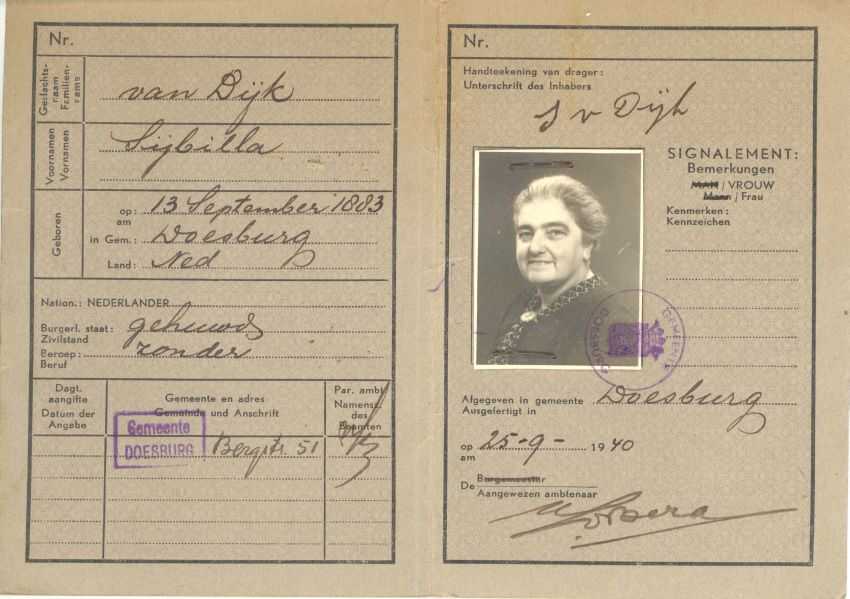 Nr.
Geslachts-
naam
Familien-
name
van Dijk
Voornamen
Vornamen
Sijbilla
Geboren
op: 13 September 1883
am
in Gem.: Doesburg
Land: Ned
Nation.: NEDERLANDER
Burgerl. staat: gehuwd
Zivilstand
Beroep: zonder
Beruf
Dagt.
aangifte
Datum der
Angabe
Gemeente en adres
Gemeinde und Anschrift
Par. ambt.
Namensz.
des
Beamten
Gemeente
DOESBURG
Bergstr. 51
Nr.
Handteekening van drager:
Unterschrift des Inhabers
S v Dijk
SIGNALEMENT:
Bemerkungen
MAN / VROUW
Mann / Frau
Kenmerken:
Kennzeichen
GEMEENTE DOESBURG
Afgegeven in gemeente Doesburg
Ausgefertigt in
op 25-9- 1940
am
De Burgemeester
Aangewezen ambtenaar